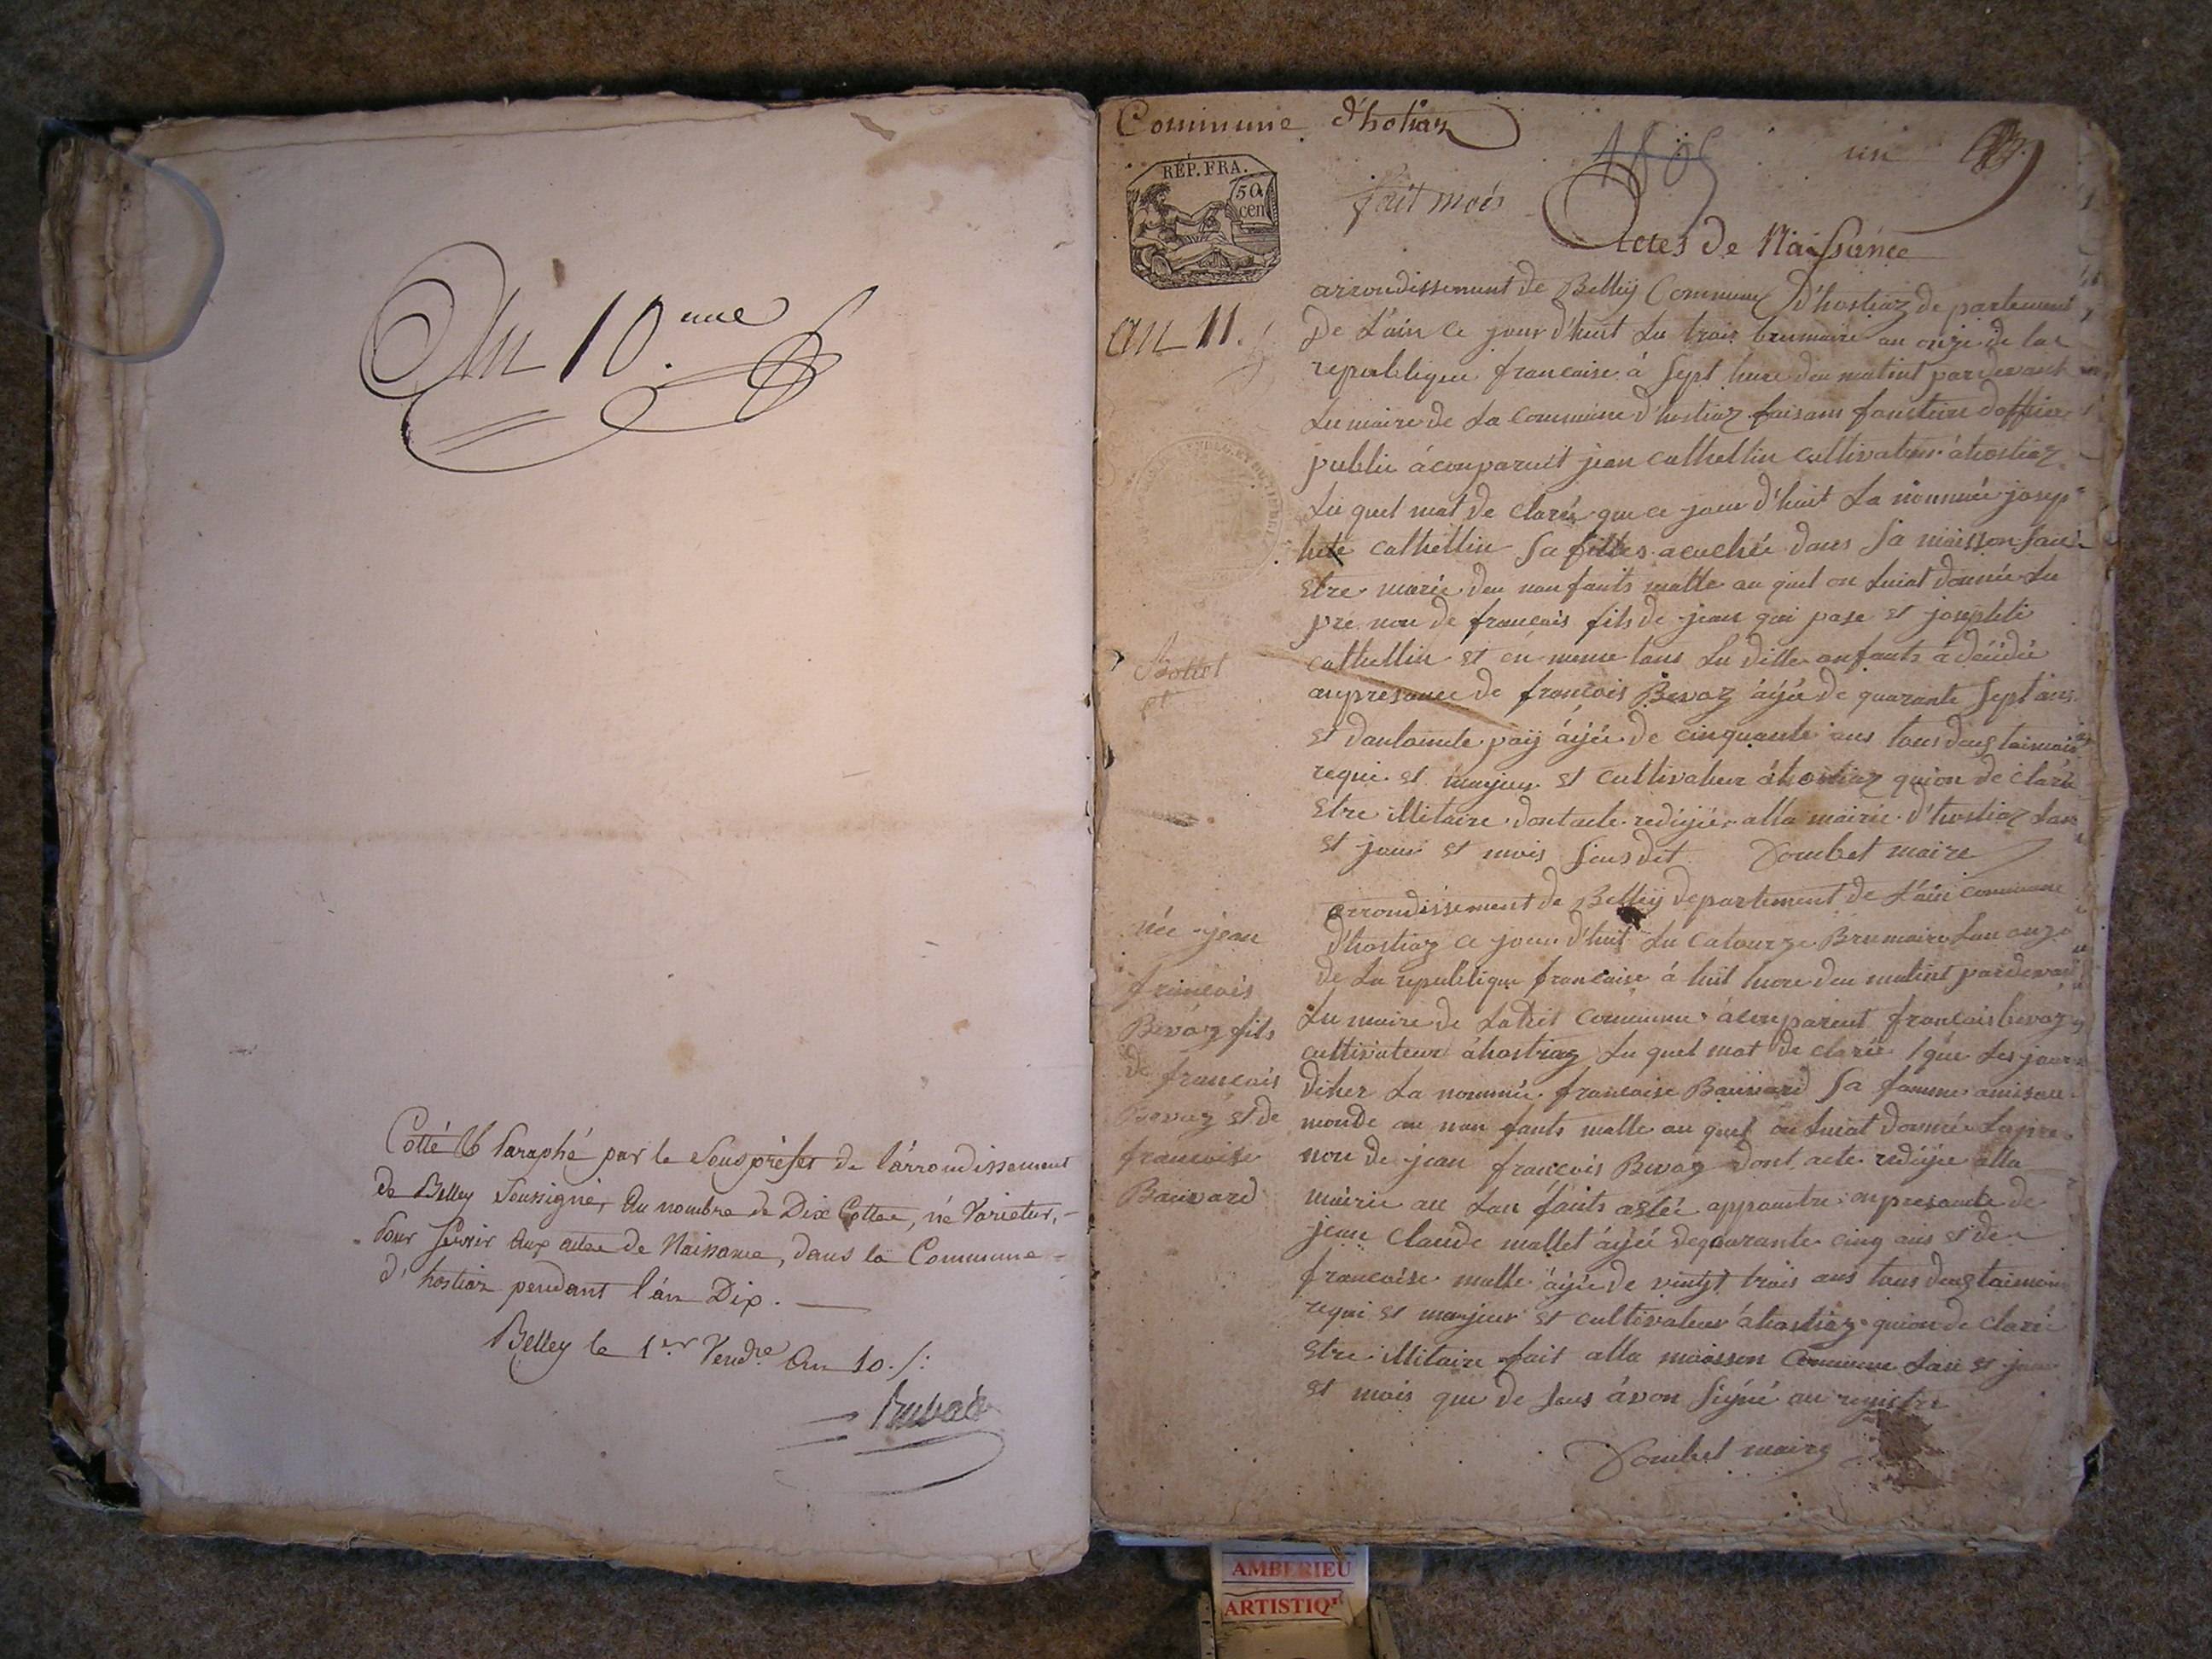 An 10.eme
Cotté & Paraphé par le Sous préfet de l'arrondissement
de Belley Soussigné, Au nombre de Dix Cottes, né Varietur,
Pour servir Aux actes de Naissance, dans la Commune
d'hostiaz pendant l'an Dix.
Belley le 1er Vendre An 10./.
Commune d'hotiaz
un
RÉP. FRA.
50
cen
fait mois
Actes de Naissance
an 11.
arrondissement de Belleÿ Commune d'hostiaz departement
De L'ain Ce jour d'huit Lu trois brumaire an onze de La
republique francaise à sept hure deu matint par devant
Lu maire de La commune d'hostiaz faisans fonction d'officier
public à conparuit jean Cathellin cultivateur à hostiaz
Lu quel mat de claré que ce jour d'huit La nommée josep
hete Cathellin sa filles acuchée dans sa maisson sans
Etre mariée deu nonfants malle au quel on Luiat donnée Lu
pré non de francois fils de jean qui pase et josephete
Cathellin et en meme tans Lu ditte anfants à déeidée
anpresance de francois Bevoz âÿée de quarante sept ans
et dantoinele paÿ âÿée de cinquante ans tous deus taimoint
requi et majeur et cultivateur à hostiaz quion de claré
Etre illitaire dont acte redijiée alla mairie d'hostiaz Lan
et jour et mois sieus dit Dombet maire
née jean
francois
Bevoz fils
de francois
Bevoz et de
francoise
Bauvard
arrondissement de Belleÿ departement de L'ain commune
d'hostiaz ce jour d'huit Lu catourze Brumaire Lan onze
de La republique francaise à huit hure deu matint par devant
Lu maire de Ladit commune à comparent francois bevoz
cultivateur à hostiaz Lu quel mat de clarée que Les jour
diher La nommée francoise Bauvard sa famme amisau
monde au nan fants malle au quel on Luiat donnée Lepre
non de jean francois Bevoz dont acte redijie alla
mairie au Lan fants astée appaintre anpresante de
jean Claude mallet âÿée dequarante cinq ans et de
francoise malle âÿée de vintjt trois ans tous deus taimoin
requi et majeur et cultivateur à hostiaz quion de claré
Etre illitaire fait alla maisson Commune Lan et jour
et mois que de sus âvon signé au registre
Dombet maire
AMBERIEU
ARTISTIQ